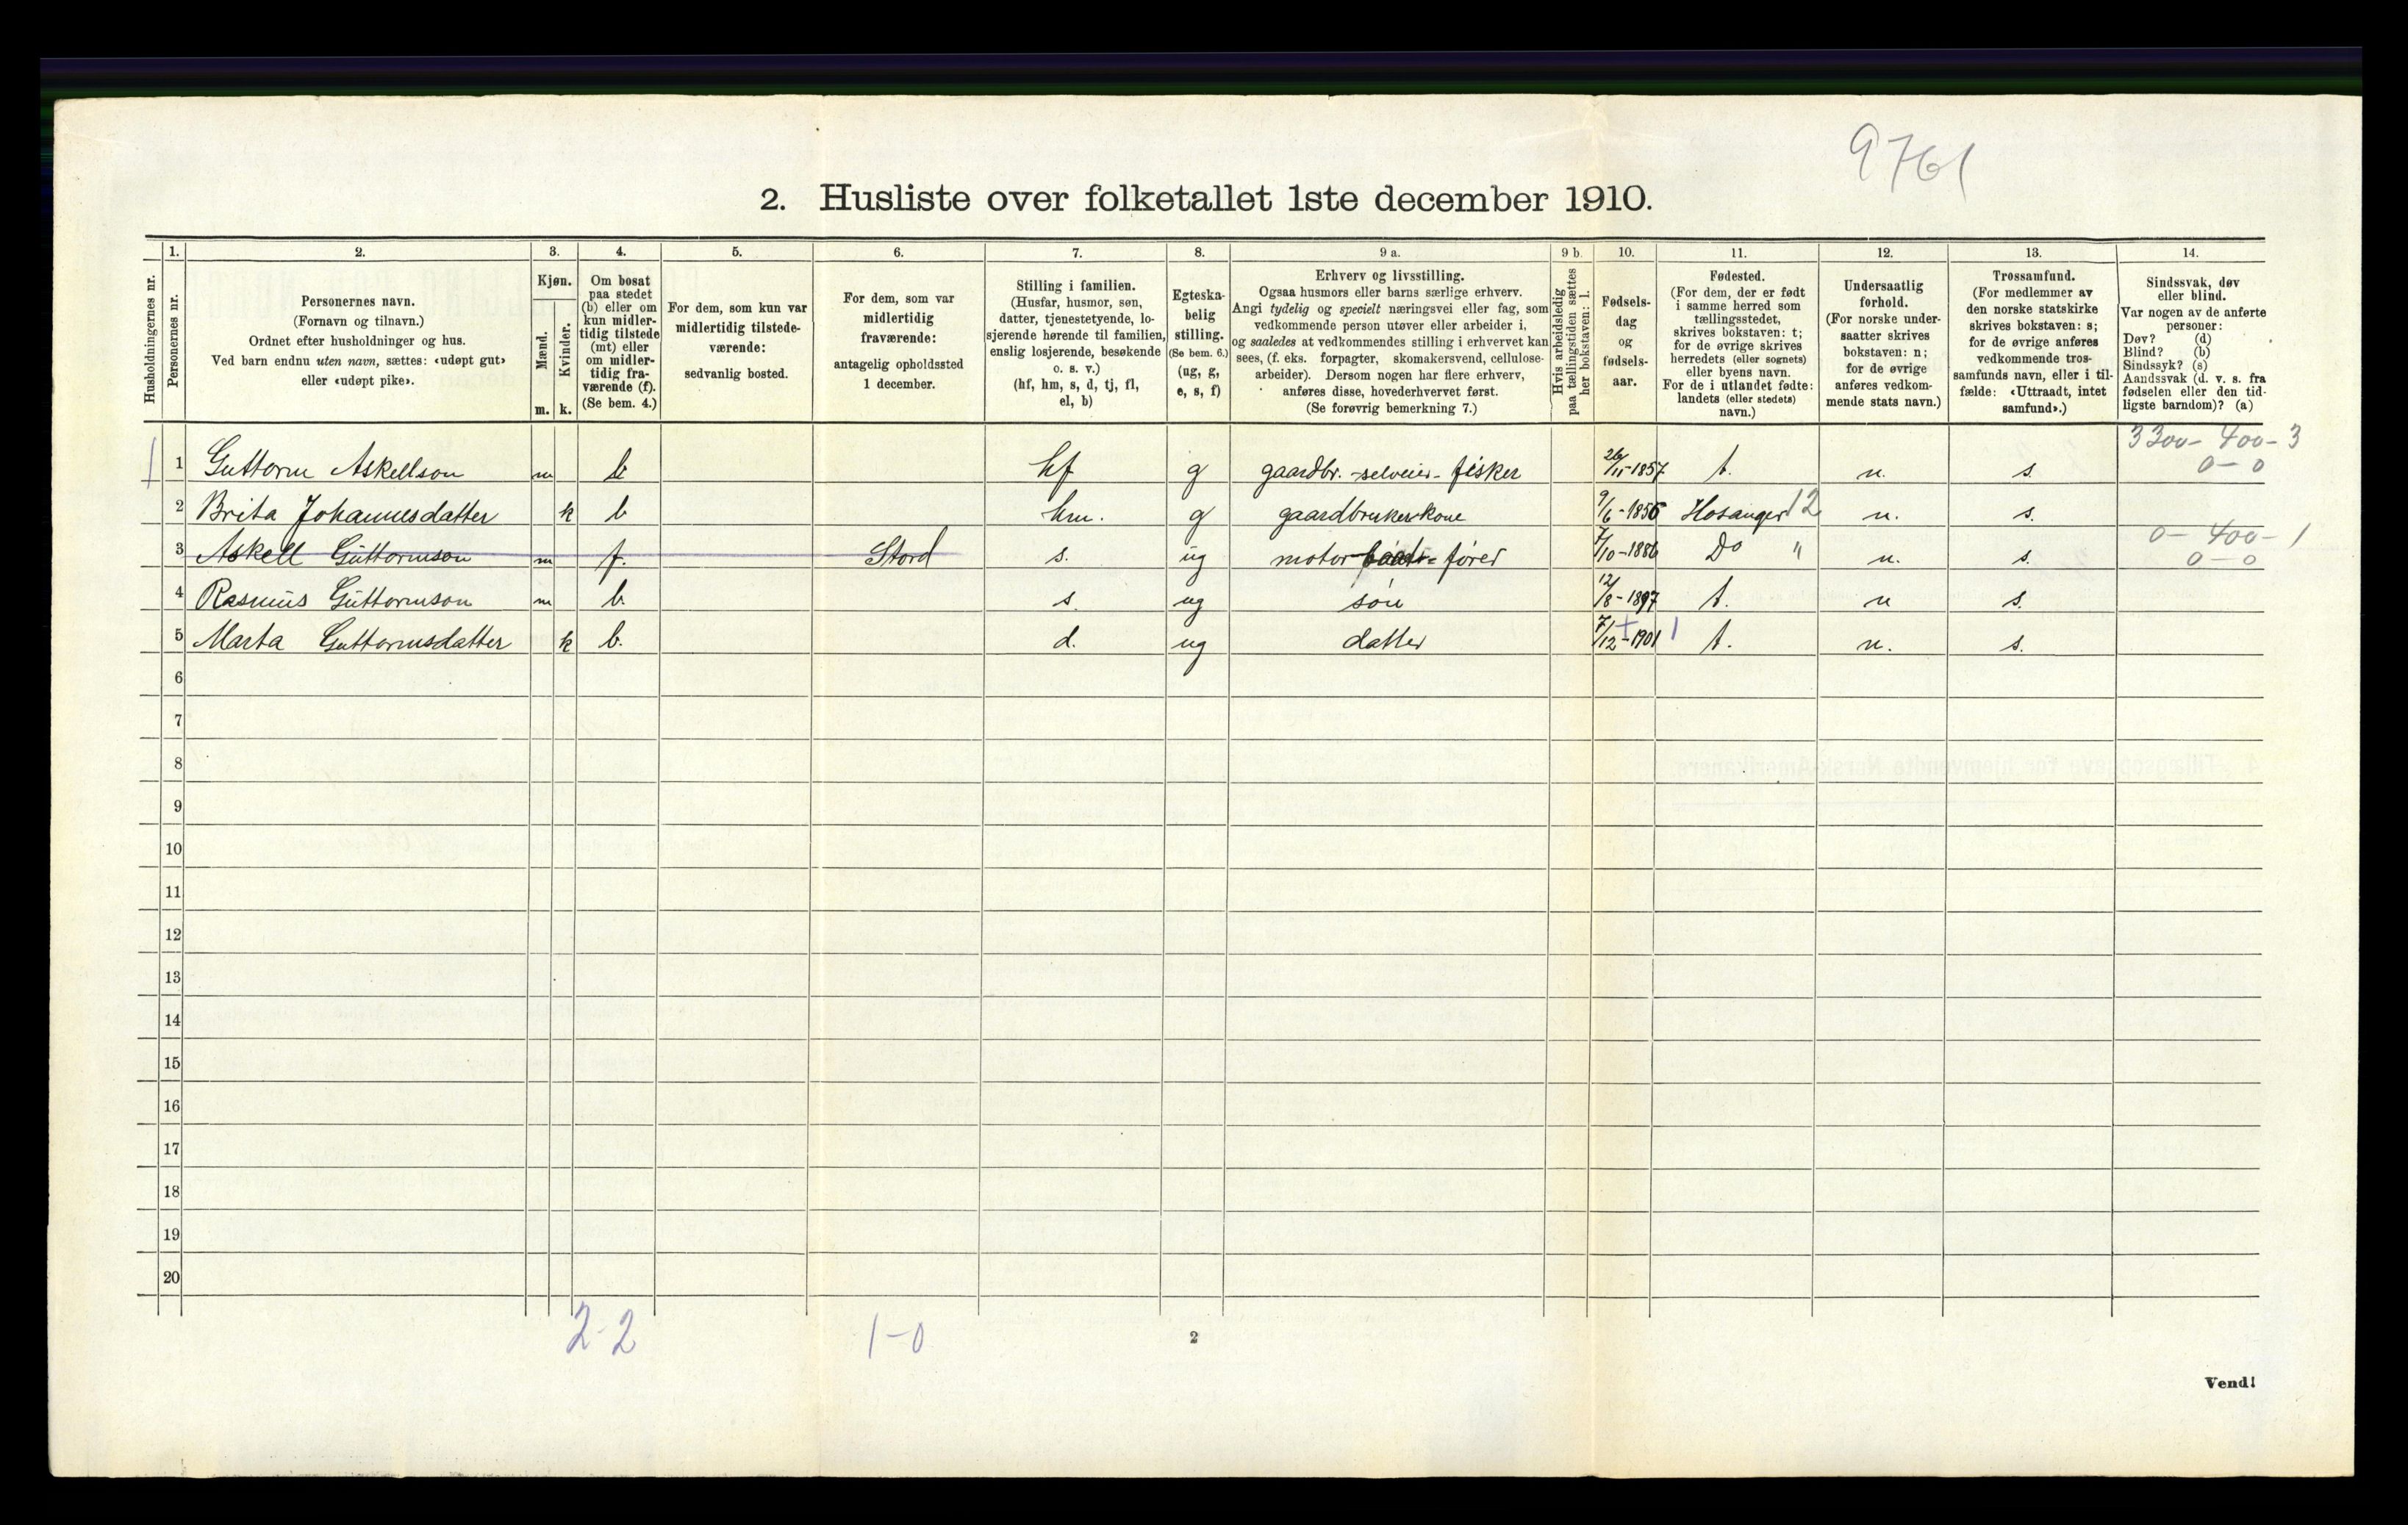 9761
2. Husliste over folketallet 1ste december 1910.
1. 2. 3. 4. 5. 6. 7. 8. 9 a. 9 b. 10. 11. 12. 13. 14.
Husholdningernes nr.
Personernes nr.
Personernes navn.
(Fornavn og tilnavn.)
Ordnet efter husholdninger og hus.
Ved barn endnu uten navn, sættes: «udøpt gut»
eller «udøpt pike».
Kjøn.
Mænd.
Kvinder.
m. k.
Om bosat
paa stedet
(b) eller om
kun midler-
tidig tilstede
(mt) eller
om midler-
tidig fra-
værende (f).
(Se bem. 4.)
For dem, som kun var
midlertidig tilstede-
værende:
sedvanlig bosted.
For dem, som var
midlertidig
fraværende:
antagelig opholdssted
1 december.
Stilling i familien.
(Husfar, husmor, søn,
datter, tjenestetyende, lo-
sjerende hørende til familien,
enslig losjerende, besøkende
o. s. v.)
(hf, hm, s, d, tj, fl,
el, b)
Egteska-
belig
stilling.
(Se bem. 6.)
(ug, g,
e, s, f)
Erhverv og livsstilling.
Ogsaa husmors eller barns særlige erhverv.
Angi tydelig og specielt næringsvei eller fag, som
vedkommende person utøver eller arbeider i,
og saaledes at vedkommendes stilling i erhvervet kan
sees, (f. eks. forpagter, skomakersvend, cellulose-
arbeider). Dersom nogen har flere erhverv,
anføres disse, hovederhvervet først.
(Se forøvrig bemerkning 7.)
Hvis arbeidsledig
paa tællingstiden sættes
her bokstaven: l.
Fødsels-
dag
og
fødsels-
aar.
Fødested.
(For dem, der er født
i samme herred som
tællingsstedet,
skrives bokstaven: t;
for de øvrige skrives
herredets (eller sognets)
eller byens navn.
For de i utlandet fødte:
landets (eller stedets)
navn.)
Undersaatlig
forhold.
(For norske under-
saatter skrives
bokstaven: n;
for de øvrige
anføres vedkom-
mende stats navn.)
Trossamfund.
(For medlemmer av
den norske statskirke
skrives bokstaven: s;
for de øvrige anføres
vedkommende tros-
samfunds navn, eller i til-
fælde: «Uttraadt, intet
samfund».)
Sindssvak, døv
eller blind.
Var nogen av de anførte
personer:
Døv? (d)
Blind? (b)
Sindssyk? (s)
Aandssvak (d. v. s. fra
fødselen eller den tid-
ligste barndom)? (a)
3300- 400-3
1 1 Guttorm Askellson m b hf g gaardbr. -selveier- fisker 26/11-1857 t. n. s. 0-0
2 Brita Johannesdatter k b hm. g gaardbrukerkone 9/6-1856 Hosanger 12 n. s.
0- 400-1
3 Askell Guttormson m f. Stord s. ug motor-baad-fører 7/10-1886 Do " n. s. 0-0
4 Rasmus Guttormson m b. s. ug søn 12/8-1897 t. n s.
5 Marta Guttormsdatter k b. d. ug datter 7/12-1901 1 t. n. s.
6
7
8
9
10
11
12
13
14
15
16
17
18
19
20
2-2 1-0
2
Vend!